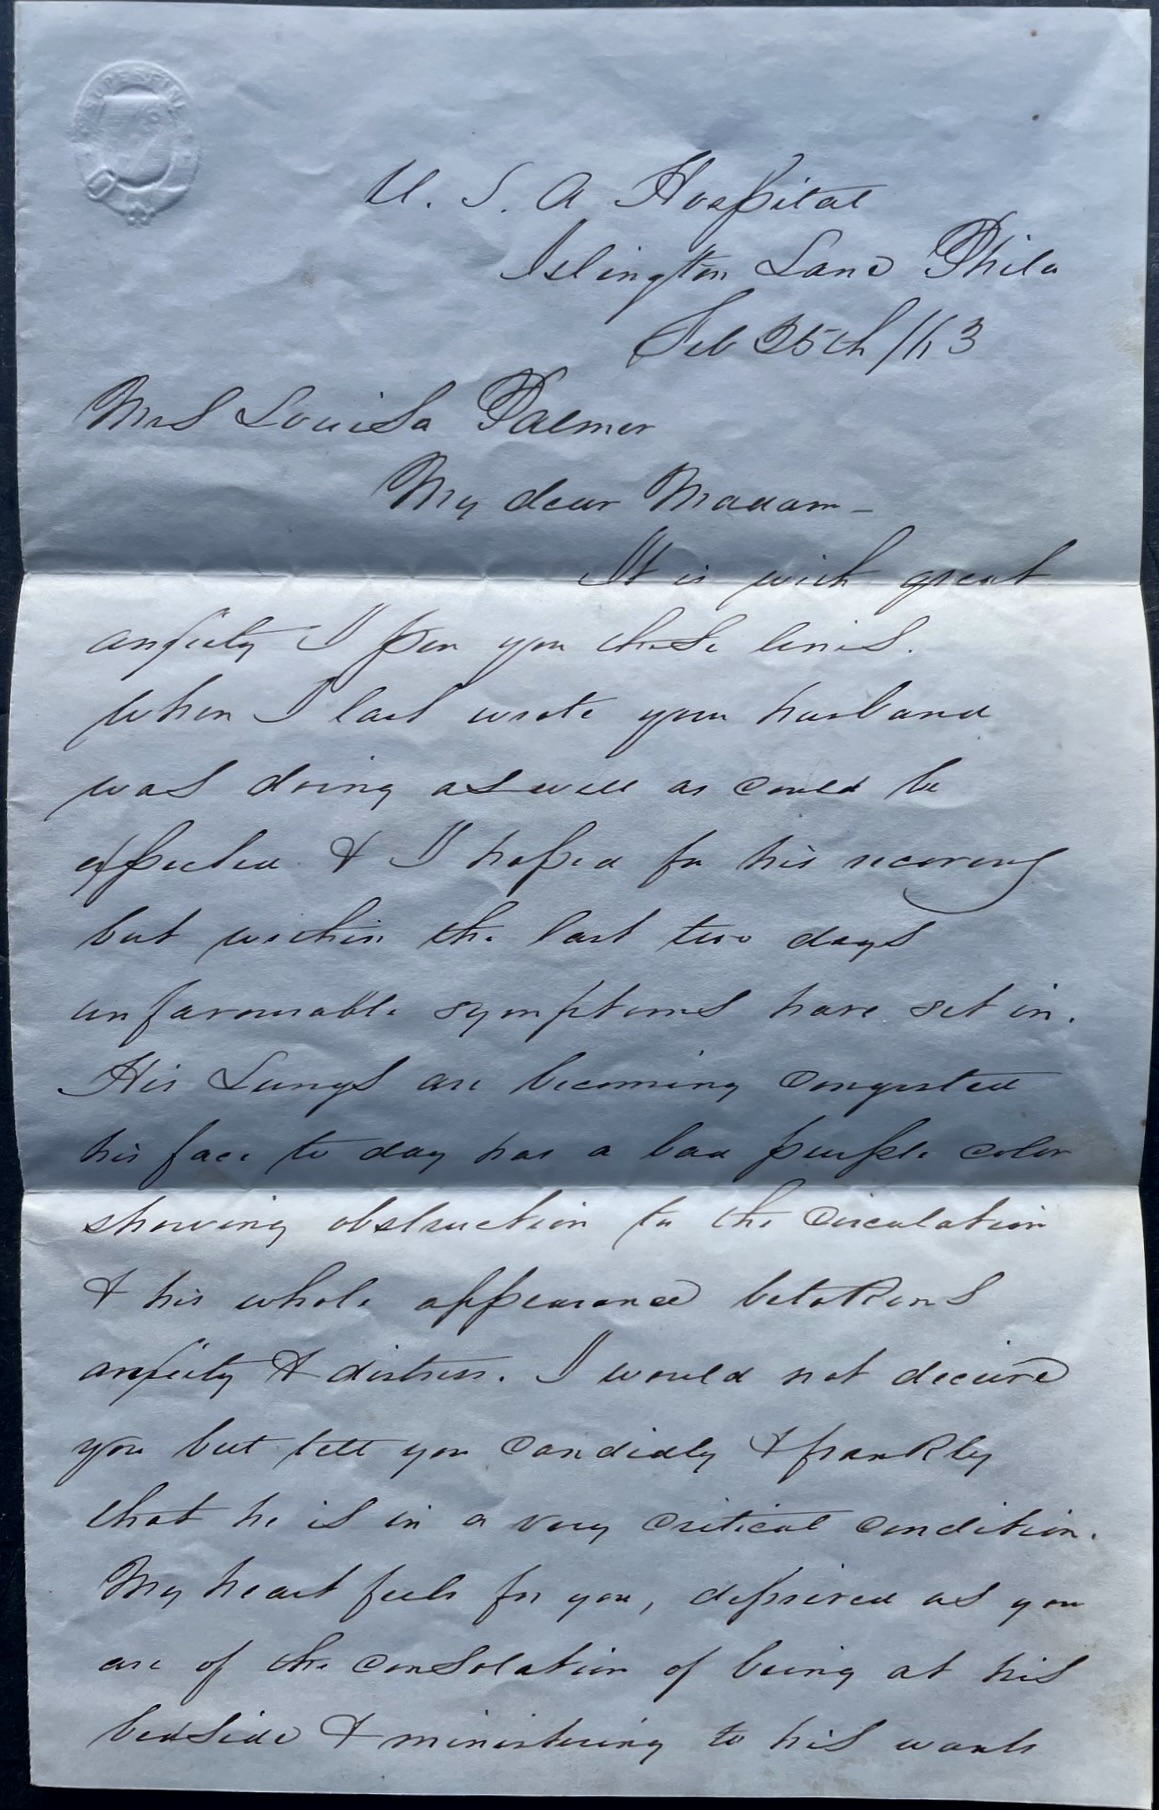 SUPERFINE
U. S. A Hospital
Islington Lane Phila
Feb 25th /63
Mrs Louisa Palmer
My dear Madam -
It is with great
anxiety I pen you these lines.
When I last wrote your husband
was doing as well as could be
expected & I hoped for his recovery
but within the last two days
unfavourable symptoms have set in.
His Lungs are becoming Congested
his face to day has a bad purple color
showing obstruction to the Circulation
& his whole appearance betokens
anxiety & distress. I would not deceive
you but tell you Candidly & frankly
that he is in a very Critical Condition.
My heart feels for you, deprived as you
are of the Consolation of being at his
bedside & ministering to his wants